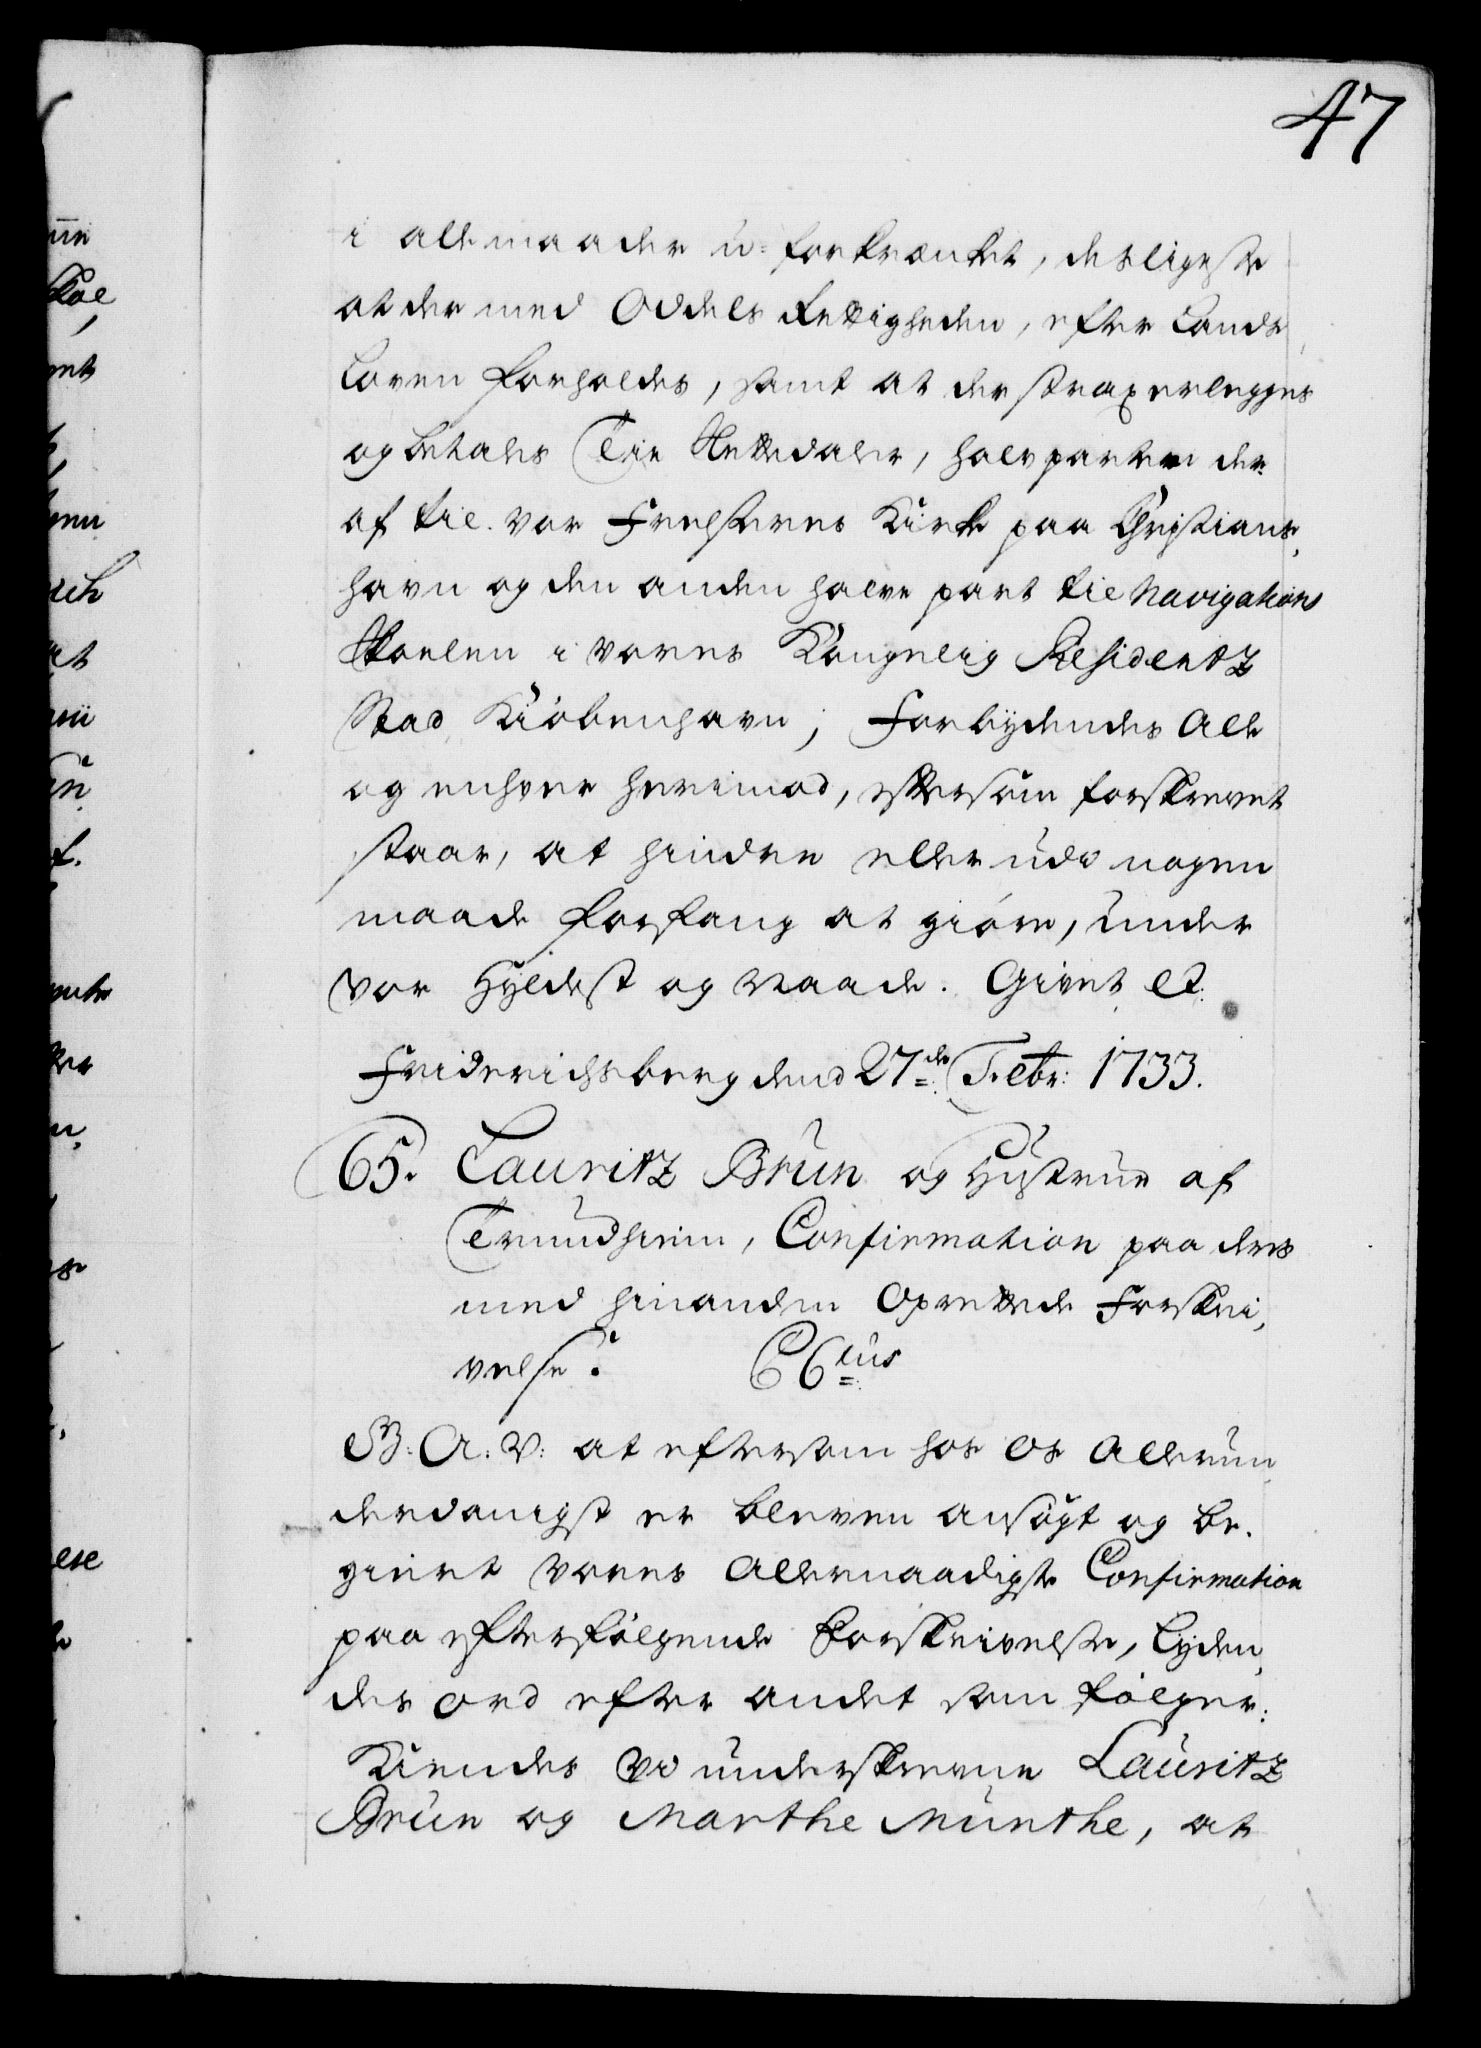 47
i alle maader u-forkrænket, desligeste
at der med Oddels Rettigheden, efter Lands
Loven forholdes, samt at der strax erlegges
og betales Tie Rettedaler, halvparten der-
af til vor Frelseres Kirke paa Christians-
havn og den anden halve part til Navigations
Skoelen i vores Kongelig Residentz
Stad Kiöbenhavn; Forbydendes Alle
og enhver herimod, eftersom forskrevet
staar, at hindre eller udi nogen
maade forfang at giöre, under
vor Hyldest og Naade. Givet et
Friderichsberg dend 27de Febr: 1733.
65. Lauritz Brun og Hustrue af
Trundhiem, Confirmation paa deres
med hinanden Oprettede Forskri-
velse.
G: A: V: at eftersom hos Os Allerun-
derdanigst er bleven ansögt og be-
gieret vores Allernaadigste Confirmation
paa efterfölgende Forskrivelse, lyden-
des ord efter andet som fölger:
Kiendes Vi underskrevne Lauritz
Brun og Marthe Munthe, at